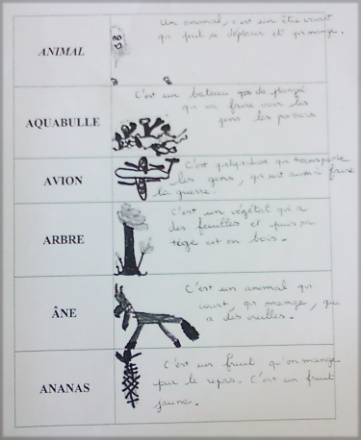 ANIMAL
Un animal, c'est un être vivant
qui peut se déplacer et qui mange.
AQUABULLE
C'est un bateau qui
qui va faire voir les
gens les poissons
AVION
C'est qui transporte
les gens, qui sert aussi à faire
la guerre.
ARBRE
C'est un végétal qui a
des feuilles et puis sa
tige est en bois.
ÂNE
C'est un animal qui
court, qui mange, qui
a des oreilles.
ANANAS
C'est un fruit qu'on mange
par le repas. C'est un fruit
jaune.